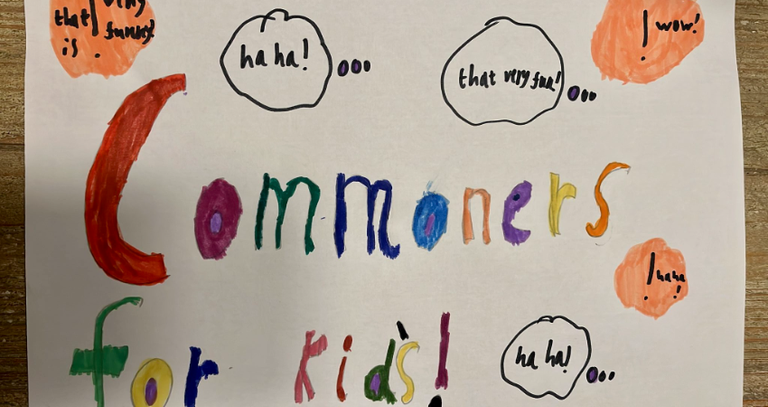 that very
is. funny!
ha ha!
that very fun!
! wow!
Commoners
! haha!
for kid's!
ha ha!